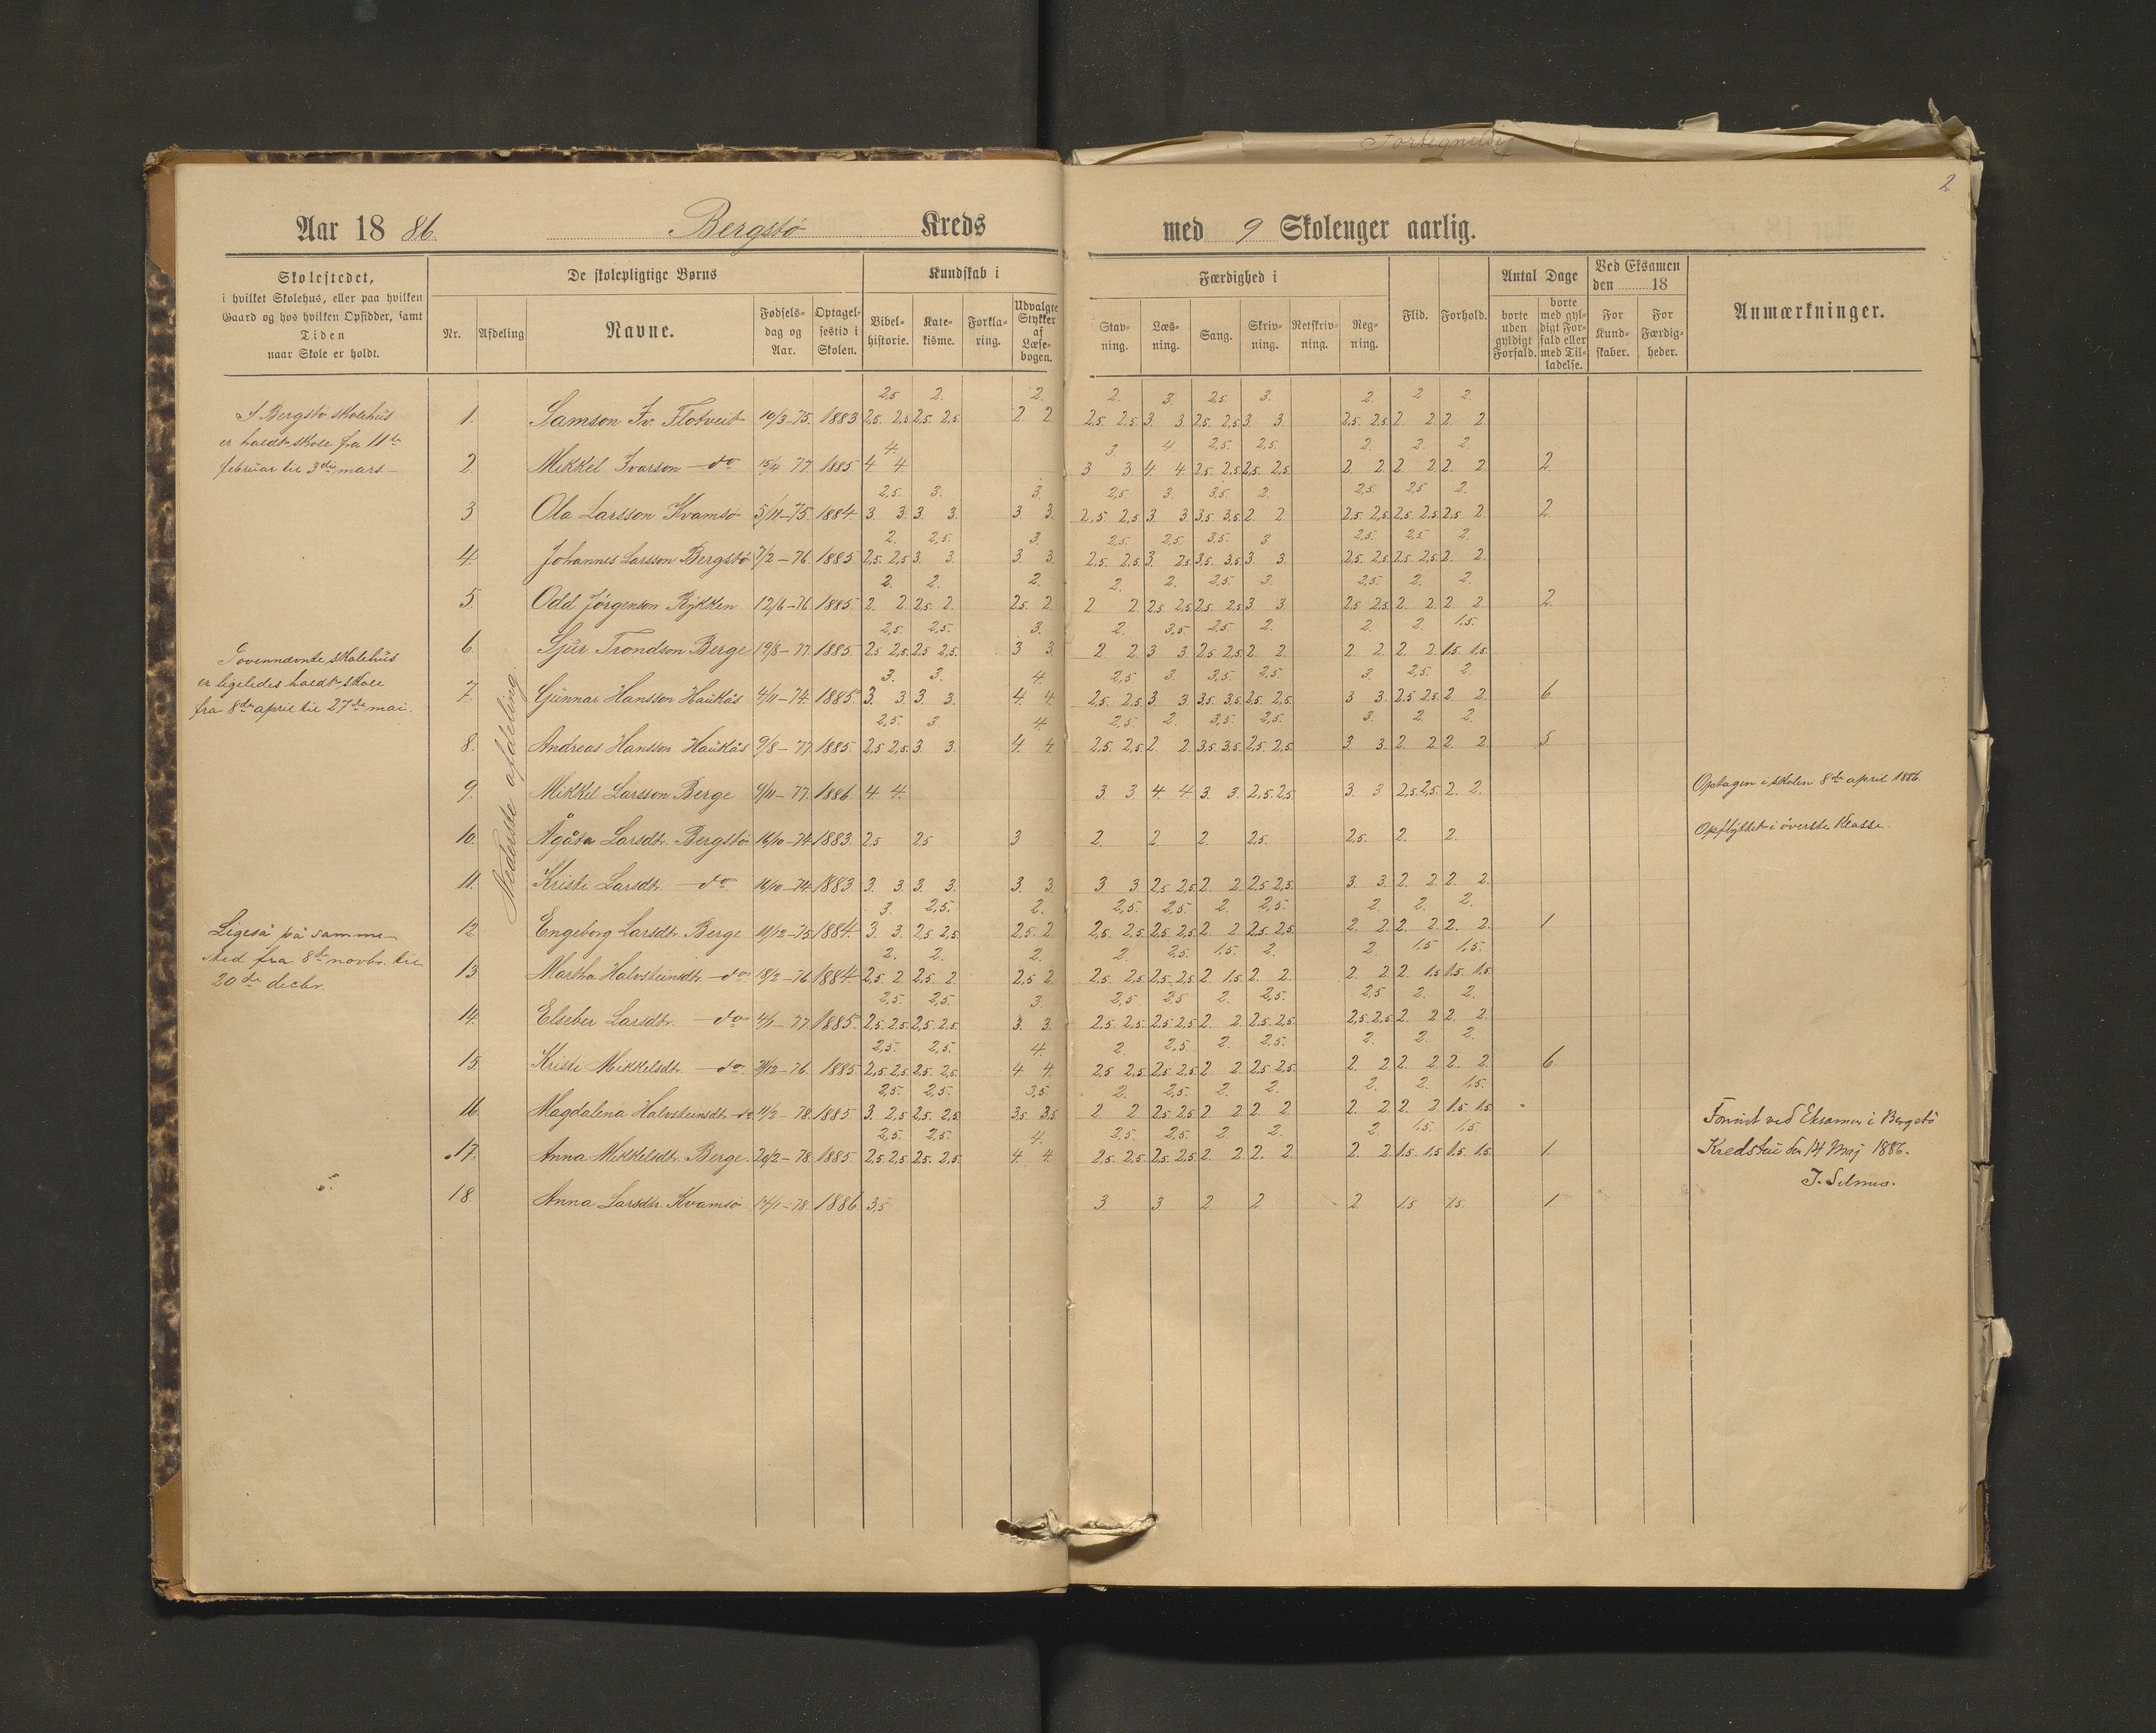 Fortegnelse
2
Aar 1886. Bergstø Kreds med 9 Skoleuger aarlig.
Skolestedet,
i hvilket Skolehus, eller paa hvilken
Gaard og hos hvilken Opsidder, samt
Tiden
naar Skole er holdt.
De skolepligtige Børns
Nr.
Afdeling
Navne.
Fødsels-
dag og
Aar.
Optagel-
sestid i
Skolen.
Kundskab i
Bibel-
historie.
Kate-
kisme.
Forkla-
ring.
Udvalgte
Stykker
af
Læse-
bogen.
Færdighed i
Stav-
ning.
Læs-
ning.
Sang.
Skriv-
ning.
Retskriv-
ning.
Reg-
ning.
Flid.
Forhold.
Antal Dage
borte
uden
gyldigt
Forfald.
borte
med gyl-
digt For-
fald eller
med Til-
ladelse.
Ved Eksamen
den 18
For
Kund-
skaber.
For
Færdig-
heder.
Anmærkninger.
I Bergstø skolehus
er holdt skole fra 11te
februar til 3die mars
I ovennævnte skolehus
er ligeledes holdt skole
fra 8de april til 27de mai.
Ligeså på samme
sted fra 8de novbr. til
20de decbr.
Nederste afdeling.
2,5 2. 2. 2. 3. 2,5. 3. 2 2 2.
1. Samson Iv. Flotveit 10/3-75. 1883 2,5. 2,5 2,5. 2,5. 2 2 2,5 2,5 3 3 2,5 2,5 3 3. 2,5 2,5 2 2 2 2
4. 3. 4. 2,5 2,5. 2. 2. 2.
2. Mikkel Ivarson do 15/4 77. 1885 4 4 3 3 4 4 2,5 2,5 2,5 2,5. 2 2 2 2 2 2 2
2,5. 3. 3. 2,5. 3. 3,5. 2. 2,5. 2,5 2.
3 Ola Larsson Kvamsø 5/11-75. 1884 3. 3. 3. 3. 3. 3. 2,5 2,5 3 3 3,5 3,5 2 2 2,5 2,5 2,5 2,5 2,5 2. 2
2. 2,5. 3. 2,5. 2,5. 3,5. 3. 2,5. 2,5. 2.
4. Johannes Larsson Bergstø 7/2-76. 1885 2,5. 2,5 3. 3. 3 3 2,5. 2,5 3. 2,5 3,5. 3,5 3 3 2,5 2,5 2,5 2,5 2. 2.
2. 2. 2. 2. 2. 2,5 3. 2,5. 2. 2.
5. Odd Jørgenson Rykken 12/6-76 1885. 2. 2. 2,5 2. 2,5. 2 2 2 2,5 2,5 2,5 2,5 3 3. 2,5 2,5 2. 2 2. 2 2
2,5. 2,5. 3. 2. 3,5. 2,5 2. 2. 2. 1,5.
6. Sjur Trondson Berge 19/8-77. 1885 2,5 2,5 2,5 2,5. 3 3. 2 2 3 3 2,5 2,5 2 2 2. 2 2 2 1,5 1,5
3. 3. 4. 2,5 3. 3,5. 2,5 3. 2,5. 2.
7. Gunnar Hansson Hauklås 4/11-74. 1885. 3. 3. 3. 3. 4 4 2,5 2,5 3 3 3,5 3,5 2,5 2,5. 3 3 2,5 2,5 2 2. 6
2,5. 3 4. 2,5 2. 3,5. 2,5. 3. 2 2.
8. Andreas Hansson Hauklås 9/8-77. 1885. 2,5 2,5. 3 3. 4 4 2,5 2,5 2 2 3,5 3,5 2,5 2,5. 3 3. 2 2 2 2 5
9. Mikkel Larsson Berge 9/11-77. 1886. 4 4. 3. 3 4. 4 3. 3. 2,5. 2,5. 3. 3 2,5. 2,5. 2. 2. Optagen i skolen 8de april 1886.
10. Ågåta Larsdtr. Bergstø 16/10-74 1883. 2,5 2,5 3 2. 2. 2. 2,5. 2,5. 2. 2. Opflyttet i øverste Klasse.
11. Kristi Larsdtr. do 16/10-74 1883 3. 3. 3. 3. 3. 3. 3 3 2,5 2,5 2 2 2,5 2,5. 3 3 2 2 2 2.
3. 2,5. 2. 2,5. 2,5. 2 2,5. 2. 2. 2.
12. Engeborg Larsdtr. Berge 11/12-75 1884. 3. 3. 2,5 2,5. 2,5. 2 2,5. 2,5 2,5 2,5 2 2 2,5 2,5. 2 2 2 2 2. 2. 1
2. 2. 2. 2. 2,5. 1,5. 2. 2. 1,5 1,5.
13. Martha Halvsteinsdtr. do 18/2-76 1884. 2,5. 2 2,5. 2 2,5 2 2,5 2,5 2,5 2,5 2 1,5 2 2. 2. 2 2 1,5 1,5 1,5
2,5. 2,5. 3. 2,5 2,5 2. 2,5. 2,5 2. 2.
14. Elseber Larsdtr. do 4/1-77. 1885. 2,5. 2,5. 2,5. 2,5. 3. 3. 2,5. 2,5 2,5 2,5 2 2 2,5 2,5. 2,5. 2,5 2. 2 2 2.
2,5. 2,5. 4. 2. 2,5. 2. 2,5. 2. 2. 2.
15. Kristi Mikkelsdtr. do 1885. 2,5. 2,5 2,5. 2,5. 4 4. 2,5 2,5 2,5 2,5 2 2 2,5 2,5. 2 2 2. 2 2. 2. 6.
2,5. 2,5. 3,5. 2. 2,5. 2. 2. 2. 2. 1,5.
16. Magdalena Halvsteinsdtr. do 11/2-78. 1885. 3. 2,5 2,5. 2,5. 3,5 3,5 2 2 2,5 2,5 2 2 2 2 2. 2 2 2 1,5 1,5
2,5. 2,5. 4. 2,5. 2,5. 2. 2. 2. 1,5. 1,5.
17. Anna Mikkelsdtr. Berge. 20/2-78. 1885. 2,5 2,5 2,5. 2,5. 4 4 2,5 2,5 2,5 2,5 2 2 2. 2 2. 2 1,5. 1,5 1,5. 1,5. 1.
18. Anna Larsdtr. Kvamsø 17/1-78. 1886. 3,5 3 3 2 2 2 1,5 1,5. 1.
ved Eksamen i Bergstø
den 14 Maj 1886.